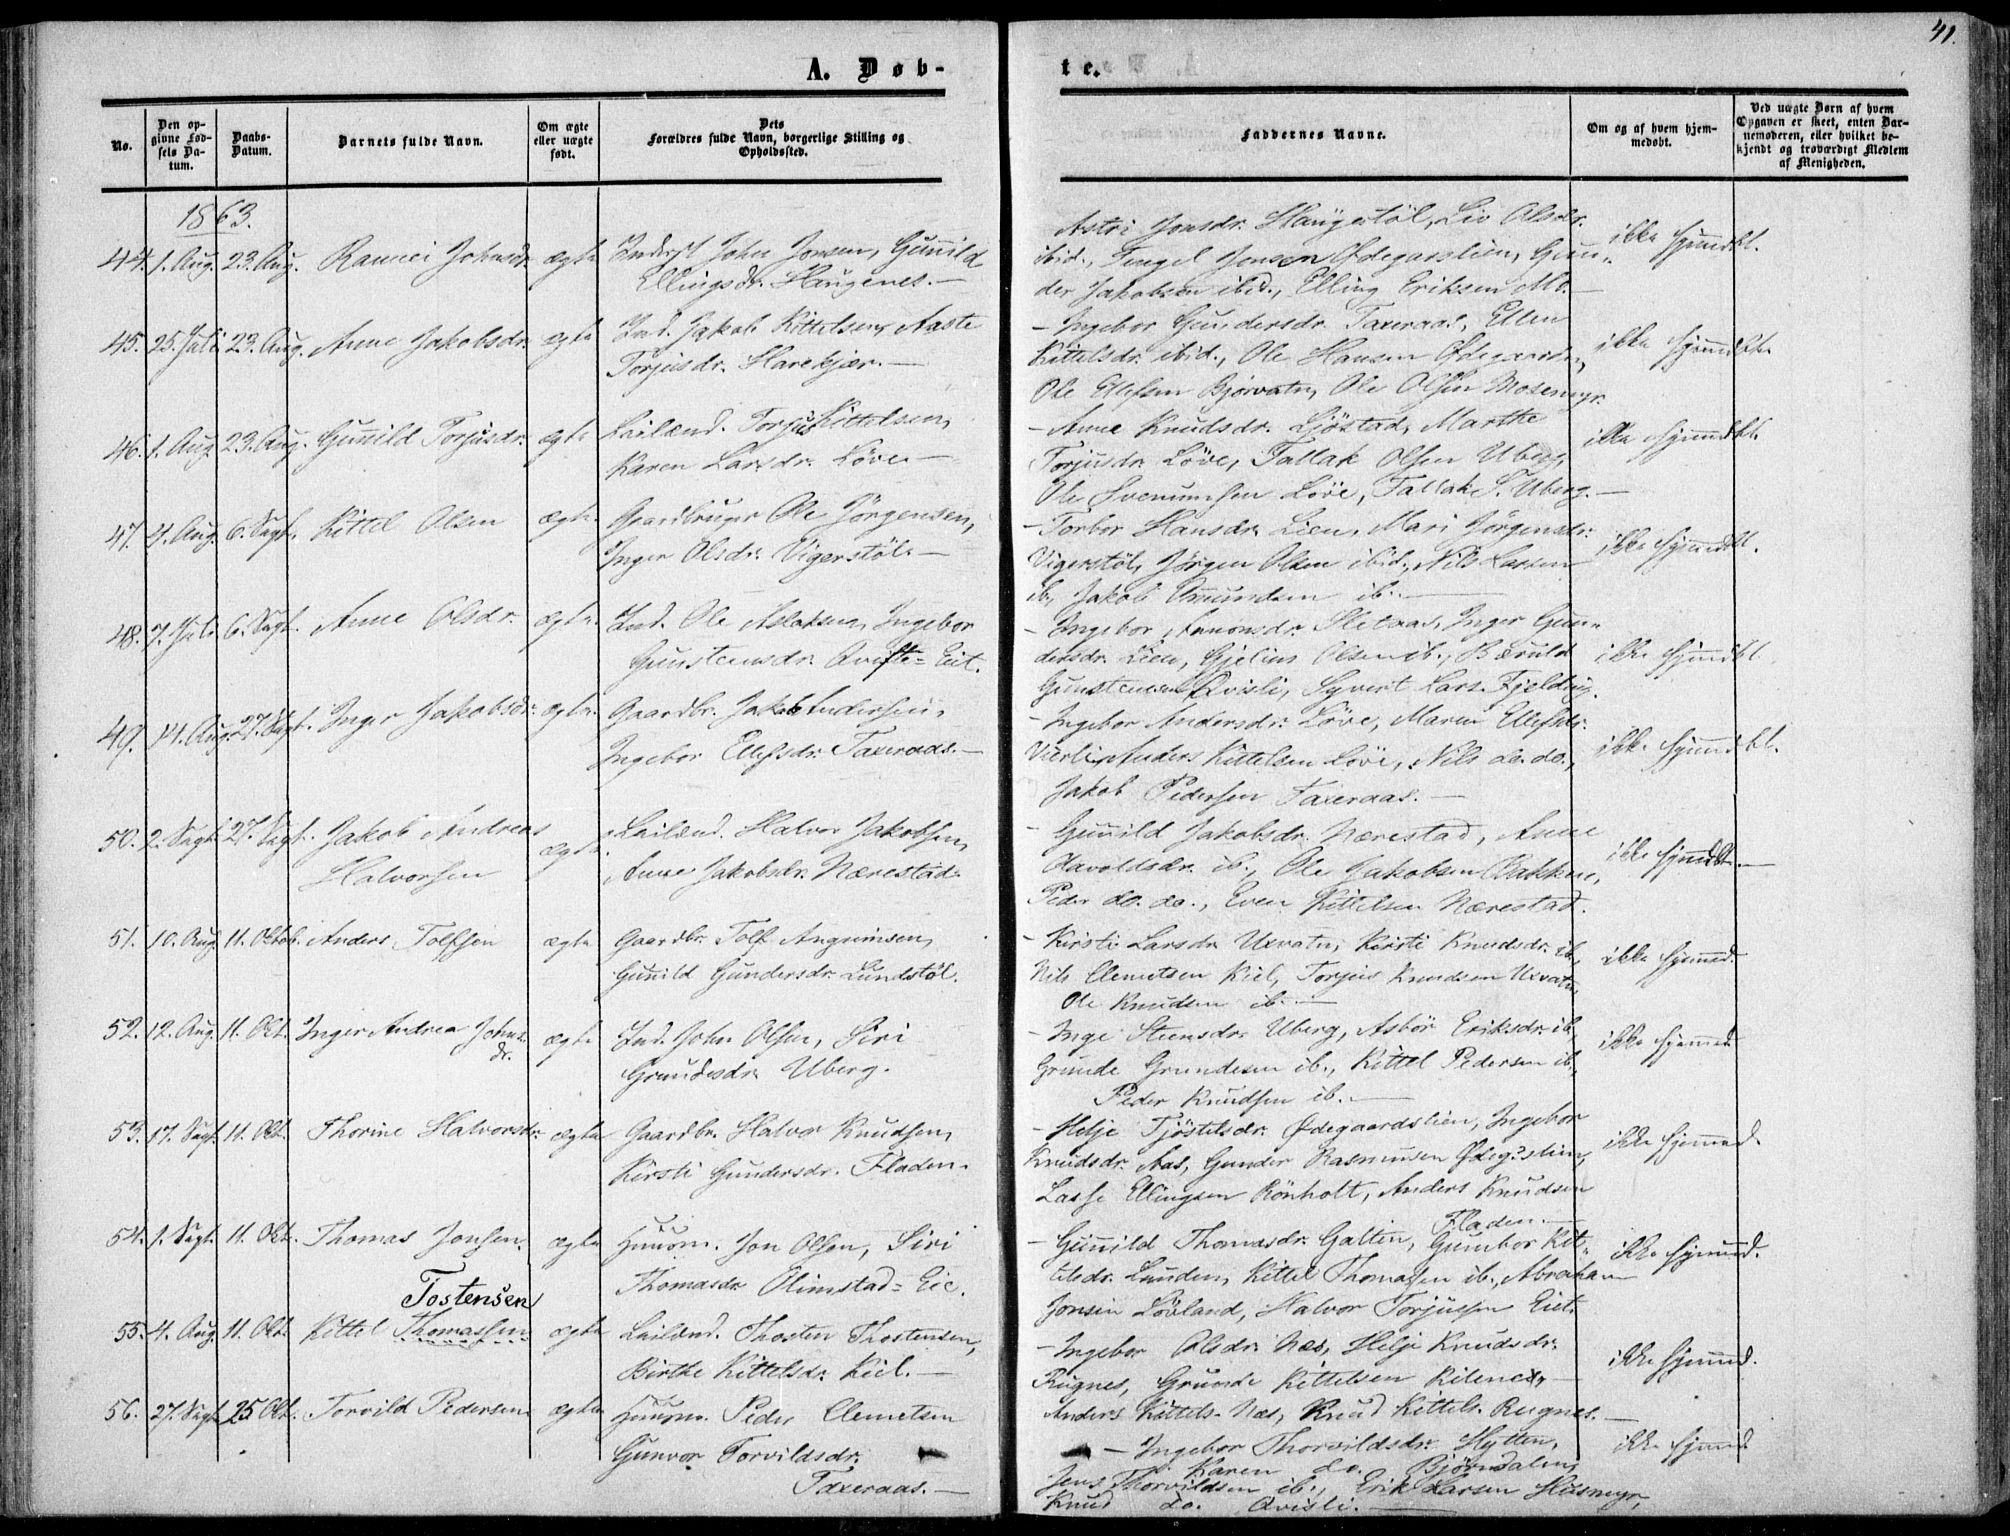 41.
A. Døb-
te.
No.
Den op-
givne Fød-
sels Da-
tum.
Daabs-
Datum.
Barnets fulde Navn.
Om ægte
eller uægte
født.
Dets
Forældres fulde Navn, borgerlige Stilling og
Opholdssted.
Faddernes Navne.
Om og af hvem hjem-
medøbt.
Ved uægte Børn af hvem
Opgaven er skeet, enten Bar-
nemoderen, eller hvilket be-
kjendt og troværdigt Medlem
af Menigheden.
1863.
44. 1. Aug. 23. Aug. Johnsdr. ægte Inderst John Jonsen, Gunild
Ellingsdr. Haugenes.—
Astri Jonsdr. Haugestöl, Liv Olsdr.
ibid., Tengel Jensen Ödegarslien, Gun-
der Jakobsen ibid., Elling Eriksen Mo.—
ikke hjemdbt.
45. 25. Juli 23. Aug. Anne Jakobsdr. ægte Ind. Jakob Kittelsen, Aaste
Torjusdr. Harekjær.—
- Ingebor Gundersdr. Taxeraas, Ellen
Kittelsdr. ibid., Ole Hansen
Ole Ellefsen Bjorvatn, Ole Olsen Mosemyr.
ikke hjemdbt.
46. 1. Aug. 23. Aug. Gunild Torjusdr. ægte Leilænd. Torjus Kittelsen,
Karen Larsdr. Löve—
- Anne Knudsdr. Ljöstad, Marthe
Torjusdr. Löve, Tallak Olsen Uberg,
Ole Svenumsen Löve, Tallak S. Uberg.—
ikke hjemdbt.
47. 4. Aug. 6. Sept. Kittel Olsen ægte Gaardbruger Ole Jörgensen,
Inger Olsdr. Vigerstöl.—
- Torbor Hansdr. Lien, Mari Jörgensdr.
Vigerstöl, Jörgen Olsen ibid., Nils Larsen
ib., Jakob Omundsen ib.—
ikke hjemdbt.
48. 7. Juli 6. Sept. Anne Olsdr. ægte Ind. Ole Aslaksen, Ingebor
Gunstensdr. = Eiet.
- Ingebor Sletaas, Inger Gun-
dersdr. Lien, Gjelius Olsen ib.,
Gunstensen Qvisli, Syvert Lars.
ikke hjemdbt.
49. 14. Aug. 27. Sept. Inger Jakobsdr. ægte Gaardbr. Jakob Andersen,
Ingebor Ellefsdr. Taxeraas.—
- Ingebor Andersdr. Löve, Maren Ellefsdr.
Vierli, Anders Kittelsen Löve, Nils do. do.,
Jakob Pedersen Taxeraas.—
ikke hjemdbt.
50. 2. Sept. 27. Sept. Jakob Andreas
Halvorsen
ægte Leilænd. Halvor Jakobsen,
Anne Jakobsdr. Nærestad.
- Gunild Jakobsdr. Nærestad, Anne
Haroldsdr. ib., Ole Jakobsen Bakken,
Peder do. do., Even Kittelsen Nærestad.
ikke hjemdbt.—
51. 10. Aug. 11. Oktob. Anders Tolfsen ægte Gaardbr. Tolf Angrimsen,
Gunild Gundersdr. Lundstöl.
- Kirsti Larsdr. Uxvatn, Kirsti Knudsdr. ib.,
Nils Clemetsen Kiel, Torjus Knudsen Uxvatn,
Ole Knudsen ib.—
ikke hjemmed.
52. 12. Aug. 11. Okt. Inger Andrea Johns-
dr.
ægte Ind. John Olsen, Siri
Grundesdr. Uberg.
- Inge Steensdr. Uberg, Asbör Eriksdr. ib.,
Grunde Grundesen ib., Kittel Pedersen ib.,
Peder Knudsen ib.—
ikke hjemmed
53. 17. Sept. 11. Okt. Thorine Halvorsdr. ægte Gaardbr. Halvor Knudsen,
Kirsti Gundersdr. Fladen.
- Helje Tjöstelsdr. Ödegaardslien, Ingebor
Knudsdr. Aas, Gunder Rasmusen
Lasse Ellingsen Rönholt, Anders Knudsen
Fladen.—
ikke hjemmed.
54. 1. Sept. 11. Okt. Thomas Jonsen. ægte Huusm. Jon Olsen, Siri
Thomasdr. Olimstad=Eie.
- Gunild Thomasdr. Galten, Gunbor Kit-
telsdr. Lunden, Kittel Thomassen ib., Abraham
Jonsen Lövland, Halvor Torjussen Eiet.
ikke hjemmed.
Tostensen
55. 4. Aug. 11. Okt. Kittel Thomassen ægte Leilænd. Thosten Thostensen,
Birthe Kittelsdr. Kiel.—
- Ingebor Olsdr. Næs, Helje Knudsdr.
Rugnes, Grunde Kittelsen Kilenes,
Anders Kittels. Næs, Knud Kittels. Rugnes.—
ikke hjemmed.
56. 27. Sept. 25 Okt. Torvild Pedersen ægte Huusm. Peder Clemetsen
Gunvor Torvildsdr.
Taxeraas.—
- Ingebor Thorvildsdr. Hytten,
Karen do. Björndalen,
Jens Thorvildsen ib., Erik Larsen Husmyr,
Knud do. Qvisli.—
ikke hjemmed